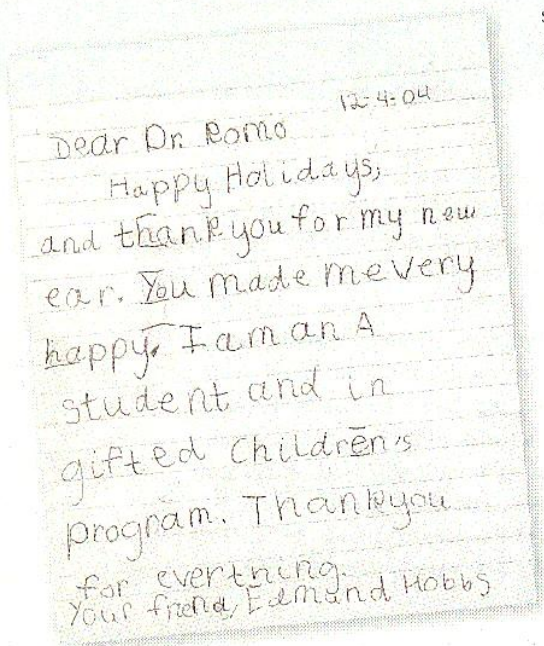 12-4-04
Dear Dr. Romo
Happy Holidays,
and thank you for my new
ear. You made me very
happy. I am an A
student and in
gifted children's
program. Thankyou
for everthing.
Your friend, Edmund Hobbs